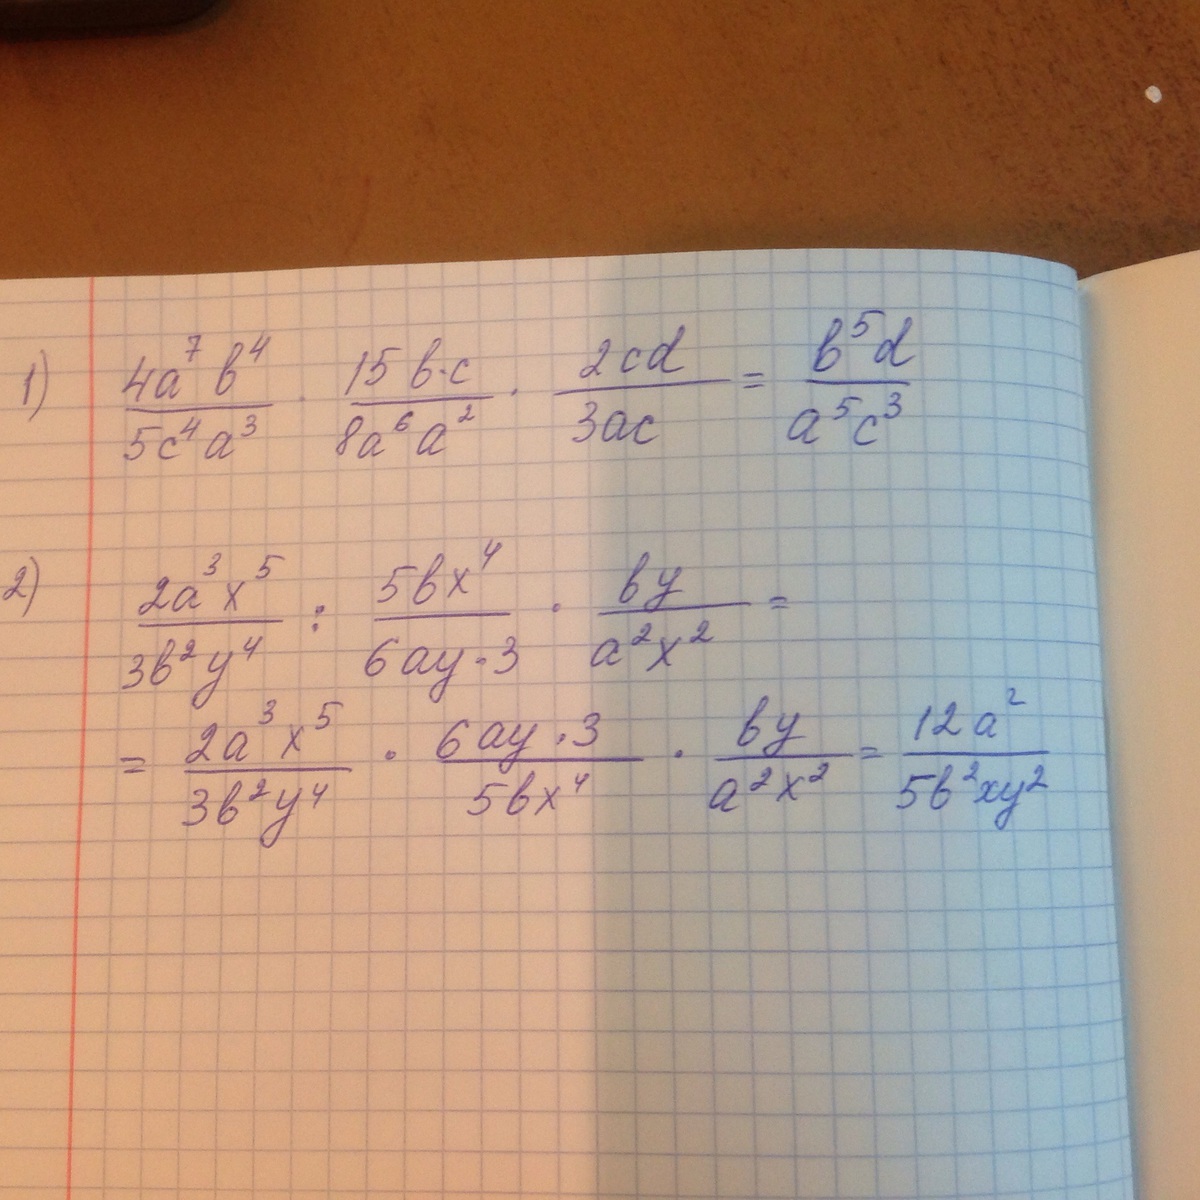 1) 4a⁷b⁴/5c⁴a³ · 15b·c/8a⁶a² · 2cd/3ac = b⁵d/a⁵c³
2) 2a³x⁵/3b²y⁴ : 5bx⁴/6ay·3 · by/a²x² =
= 2a³x⁵/3b²y⁴ · 6ay·3/5bx⁴ · by/a²x² = 12a²/5b²xy²